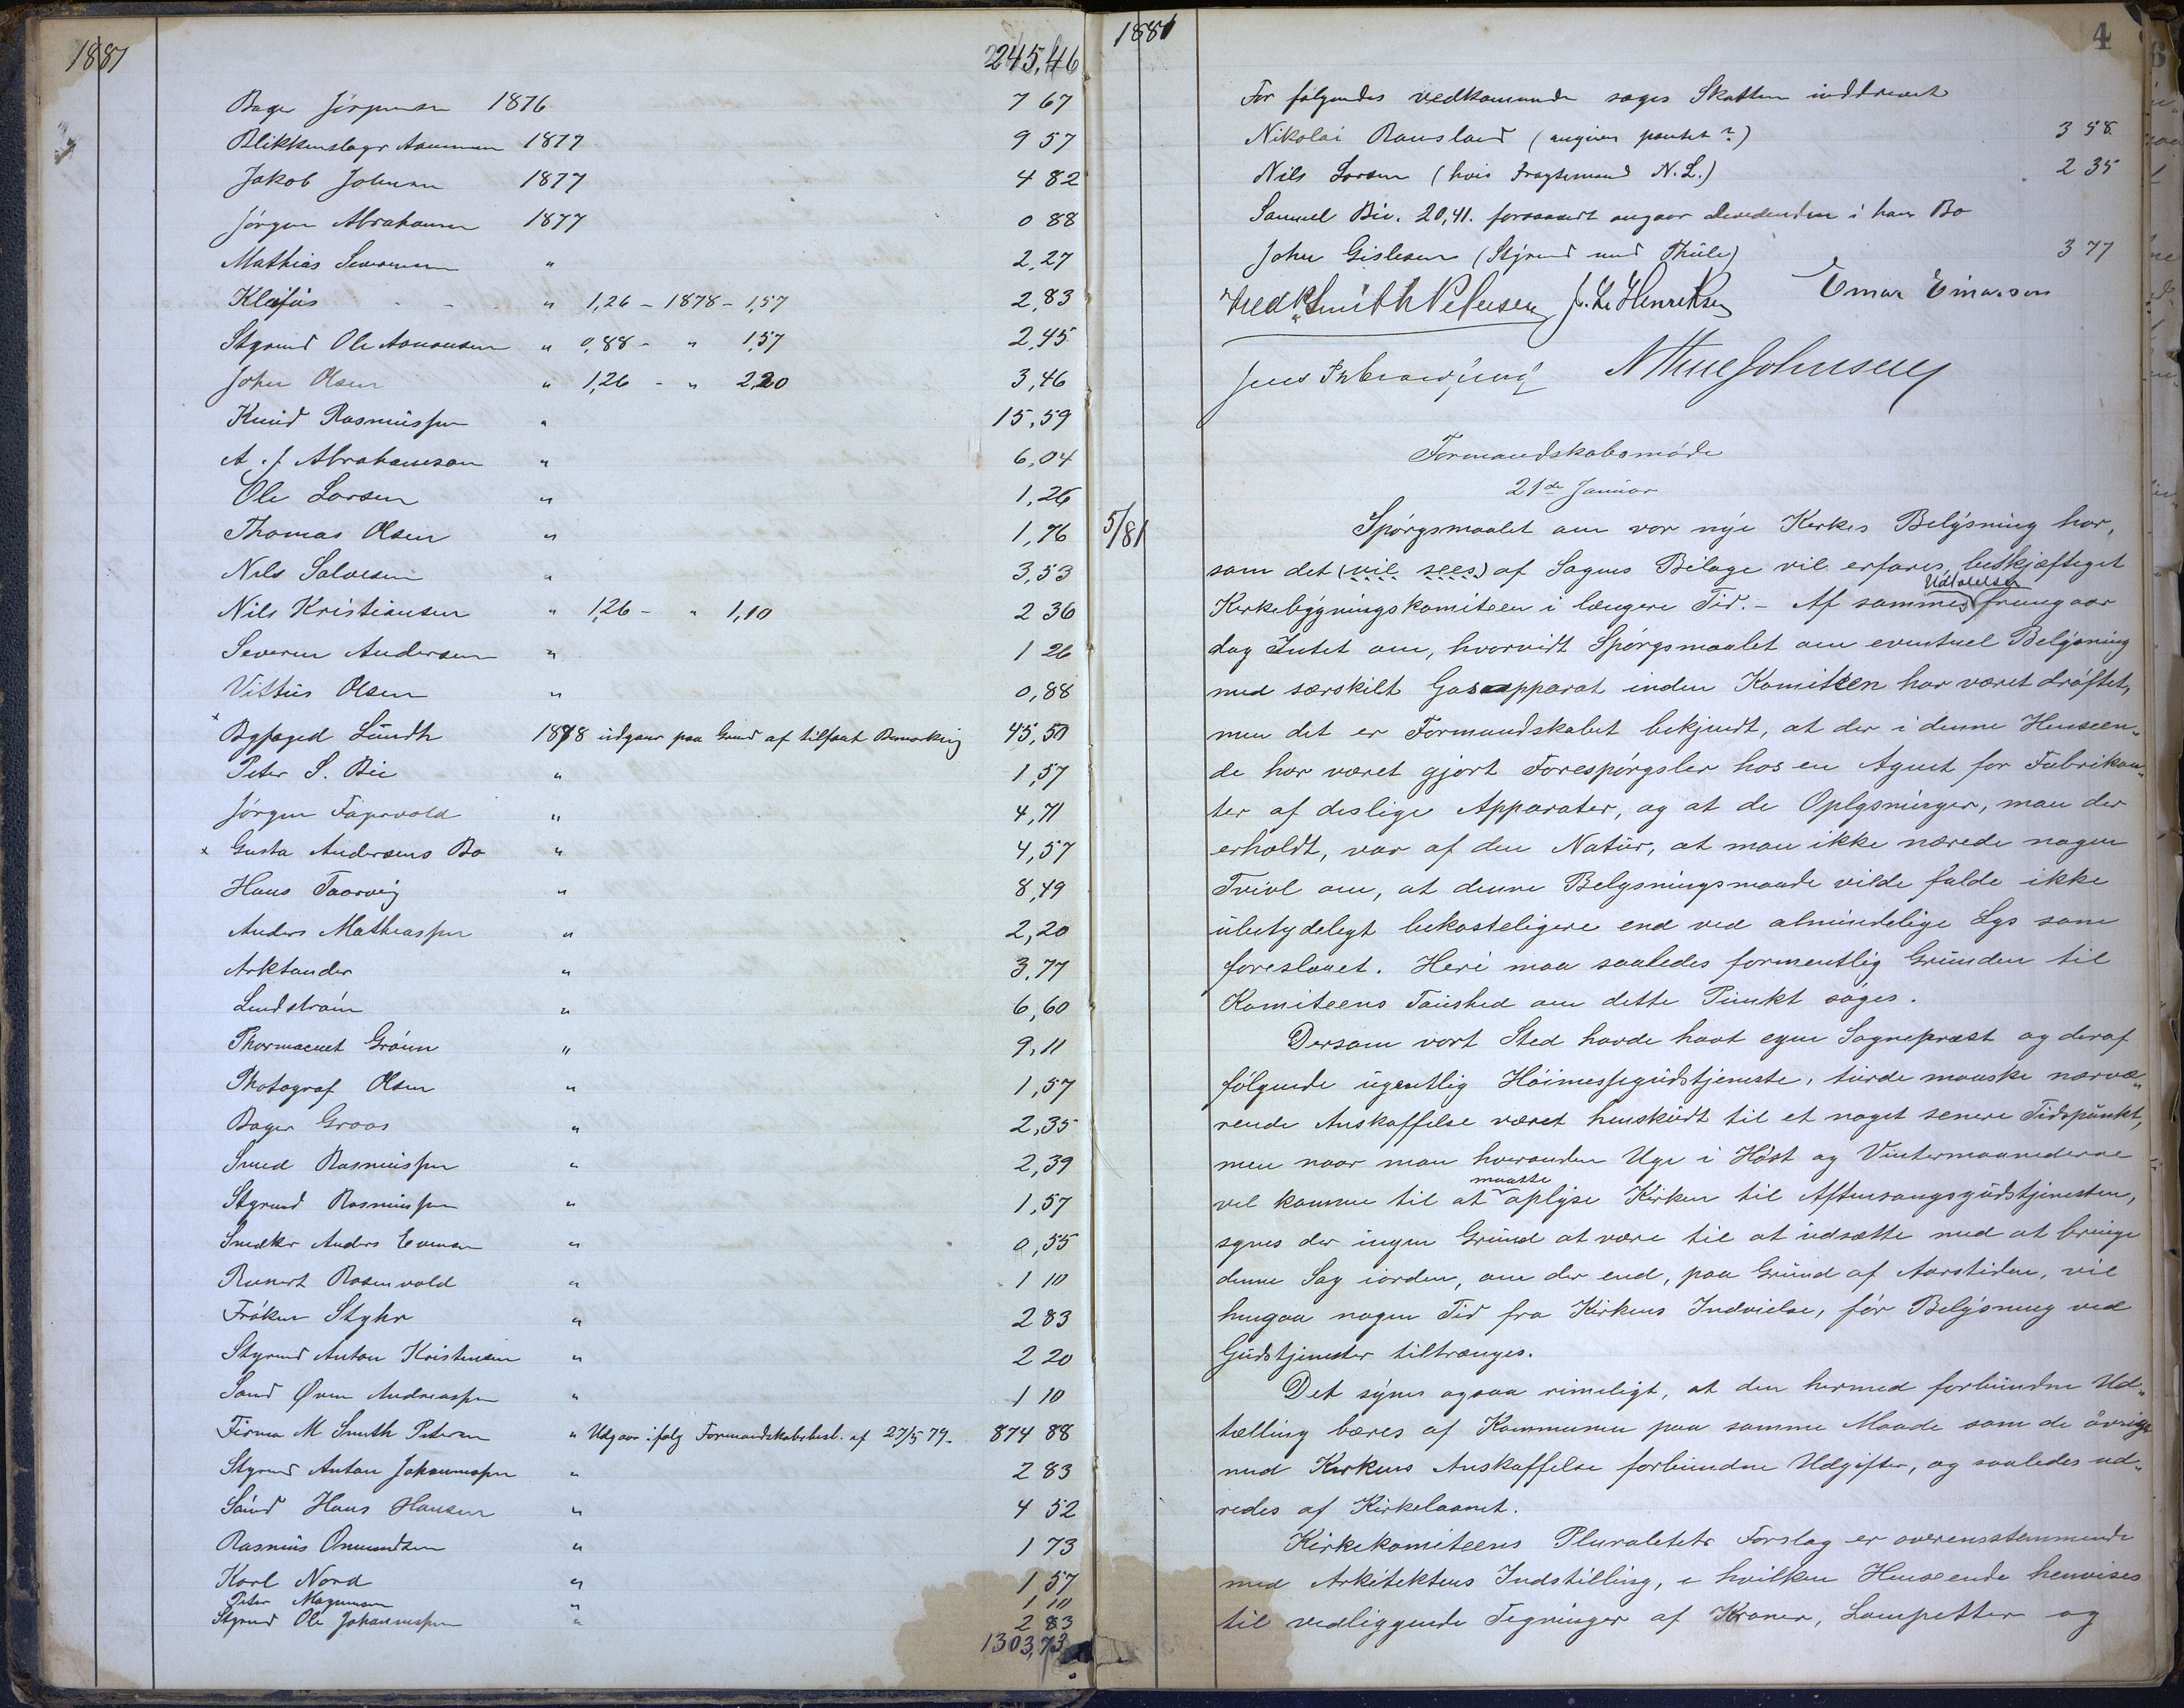 1881
245,46
Bager Jørgensen 1876 7 67
Blikkenslager Aanensen 1877 9 57
Jakob Johnsen 1877 4 82
Jørgen Abrahamsen 1877 0 88
Mathias Severinsen " 2,27
Kleifús " 1,26 - 1878 - 1,57 2,83
Styrmd Ole Aanonsen " 0,88 - " 1,57 2,45
John Olsen " 1,26 - " 2,20 3,46
Knud Rasmussen " 15,59
A. J. Abrahamson " 6,04
Ole Larsen " 1,26
Thomas Olsen " 1,76
Nils Salvesen " 3,53
Nils Kristiansen " 1,26 - " 1,10 2 36
Severin Andersen " 1 26
Vittus Olsen " 0,88
x Byfoged Lundh 1878 udgaar paa Grund af tilføiet Bemærkning 45,50
Peter S. Bie " 1,57
Jørgen Fagervold " 4,71
x Gusta Andersens Bo " 4,57
Hans Taarvig " 8,49
Anders Mathiassen " 2,20
Arktander " 3,77
Lindstrøm " 6,60
Pharmaceut Grønn " 9,11
Photograf Olsen " 1,57
Bager Groos " 2,35
Smed Rasmussen " 2,39
Styrmd Rasmussen " 1,57
Snedker Anders Evensen " 0,55
Reinert Rosenvold " 1 10
Frøken Styhr " 2 83
Styrmd Anton Kristensen " 2 20
Sømd Øven Andreassen " 1 10
Firma M Smith Petersen " Udgaar ifølg Formandskabsbesl. af 27/5 79. 874 88
Styrmd Anton Johannessen " 2 83
Sømd Hans Hansen " 4 52
Rasmus Omundsen " 1 73
Karl Nord " 1 57
Peter Magnusen " 1 10
Styrmd Ole Johannessen " 2 83
1303,73
1881
4
For følgendes vedkommende søges Skatten inddrevet
Nikolai Rausland (angiver pantet?) 3 58
Nils Larsen (hvis Fragtemand N. L.) 2 35
Samuel Bie. 20,41. forsaavidt angaar devidenden i hans Bo
John Gislesen (Styrmd med Thule) 3 77
Fredk Smith Petersen J. L. Henriksen Einar Einarson
Jens N Thue Johnsen
Formandskabsmøde
21de Januar
5/81 Spørgsmaalet om vor nye Kirkes Belysning har,
som det (vil sees) af Sagens Bilage vil erfares, beskjæftiget
Kirkebygningskomiteen i længere Tid. - Af sammes Udtalelser fremgaar
dog Intet om, hvorvidt Spørgsmaalet om eventuel Belysning
med særskilt Gasapparat inden Komiteen har været drøftet,
men det er Formandskabet bekjendt, at der i denne Henseen-
de har været gjort Forespørgsler hos en Agent for Fabrikan-
ter af deslige Apparater, og at de Oplysninger, man der
erholdt, var af den Natur, at man ikke nærede nogen
Tvivl om, at denne Belysningsmaade vilde falde ikke
ubetydeligt bekosteligere end ved almindelige Lys som
foreslaaet. Heri maa saaledes formentlig Grunden til
Komiteens Taushed om dette Punkt søges.
Dersom vort Sted havde havt egen Sognepræst og deraf
følgende ugentlig Høimessegudstjeneste, turde maaske nærvæ-
rende Anskaffelse været henskudt til et noget senere Tidspunkt,
men naar man hveranden Uge i Høst og Vintermaanederne
vil komme til at maatte oplyse Kirken til Aftensangsgudstjenesten,
synes der ingen Grund at være til at udsætte med at bringe
denne Sag iorden, om der end, paa Grund af Aarstiden, vil
hengaa nogen Tid fra Kirkens Indvielse, før Belysning ved
Gudstjenester tiltrænges.
Det synes ogsaa rimeligt, at den hermed forbundne Ud-
tælling bæres af Kommunen paa samme Maade som de øvrige
med Kirkens Anskaffelse forbundne Udgifter, og saaledes ud-
redes af Kirkelaanet.
Kirkekomiteens Pluralitets Forslag er overensstemmende
med Arkitektens Indstilling, i hvilken Henseende henvises
til vedliggende Tegninger af Kroner, Lampetter og